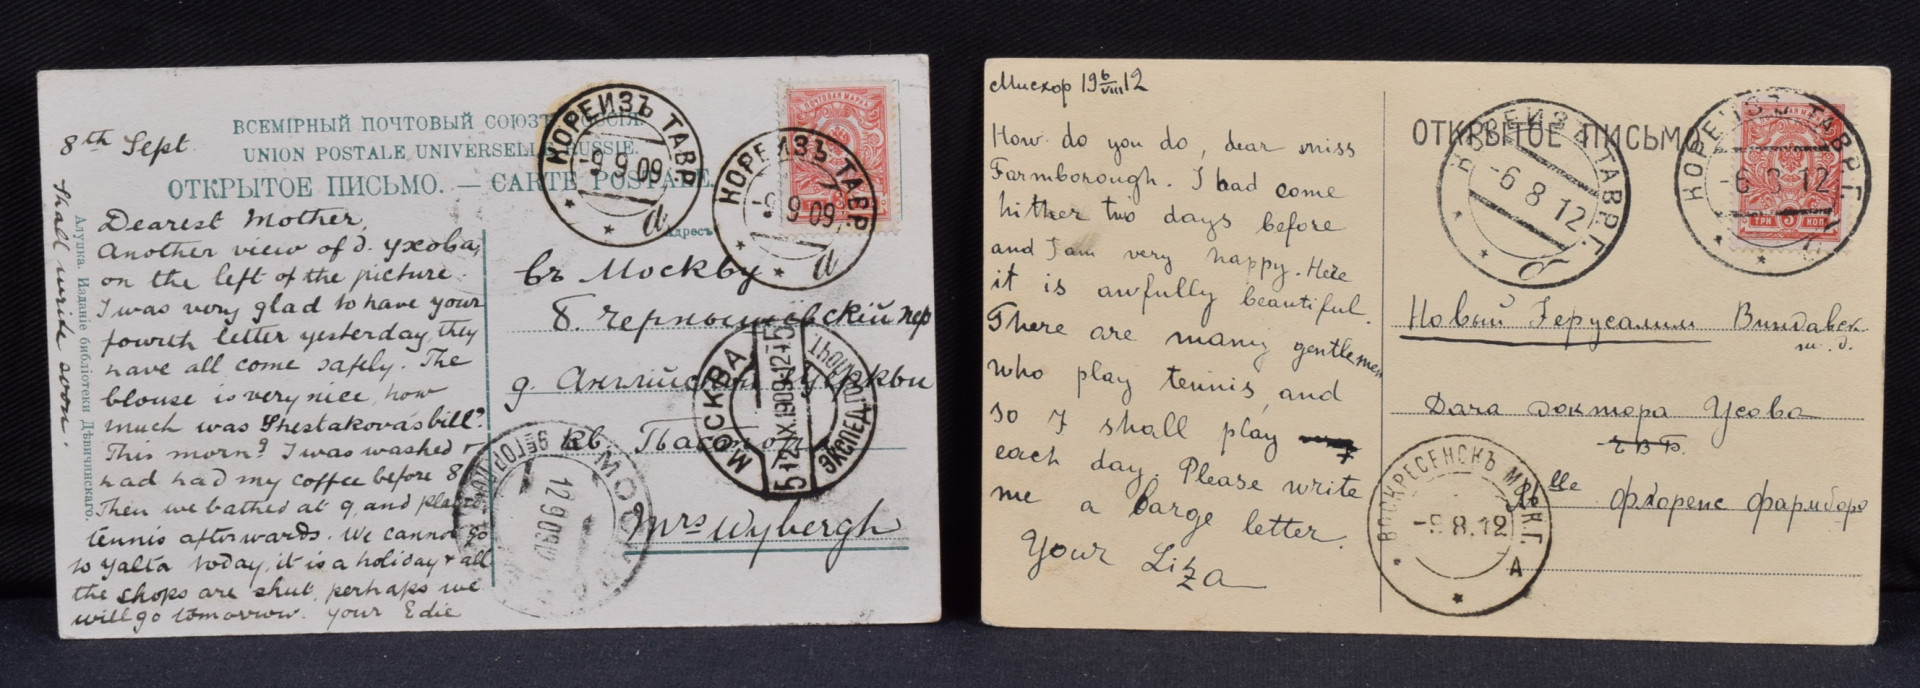 8th Sept
ВСЕМІРНЫЙ ПОЧТОВЫЙ СОЮЗЪ. РОССІЯ.
UNION POSTALE UNIVERSELLE. RUSSIE.
ОТКРЫТОЕ ПИСЬМО. — CARTE POSTALE.
Адресъ
Dearest Mother,
Another view of д. Ухова,
on the left of the picture.
I was very glad to have your
fourth letter yesterday, they
have all come safely. The
blouse is very nice, how
much was Shestakova's bill?
This morng I was washed &
had had my coffee before 8.
Then we bathed at 9, and play
tennis afterwards. We cannot go
to Yalta today, it is a holiday & all
the shops are shut, perhaps we
will go tomorrow. Your Edie
Shall write soon.
Алупка. Изданіе библіотеки Дѣвичинскаго.
въ Москву
Б. Чернышевскій пер
д. Англійской Церкви
кв. Пастора
Mrs Wybergh
ПОЧТОВАЯ МАРКА
КОРЕИЗЪ ТАВР.
-9.9.09
а
КОРЕИЗЪ ТАВР.
-9.9.09
а
МОСКВА
5-12.IX.1909.12-5
ЭКСПЕД.ГОР.ПОЧТ.
МОСКВА
12.9.09
Мисхор 19 6/VIII 12
How do you do, dear miss
Farmborough. I had come
hither two days before
and I am very happy. Here
it is awfully beautiful.
There are many gentlemen
who play tennis, and
so I shall play
each day. Please write
me a large letter.
Your Liza
ОТКРЫТОЕ ПИСЬМО
Новый Іерусалим Виндавск.
ж. д.
Дача доктора Усова
Е.В.Б.
Mlle Флоренс Фармборо
КОРЕИЗЪ ТАВР.Г.
-6 8 12
б
КОРЕИЗЪ ТАВР.Г.
-6 8 12
ТРИ 3 КОП
ВОСКРЕСЕНСКЪ МОСК.Г.
-9.8.12
А